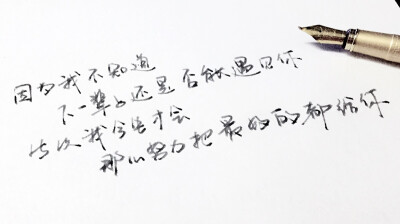 因为我不知道
下一辈子还是否能遇见你
所以我今生才会
那么努力把最好的都给你